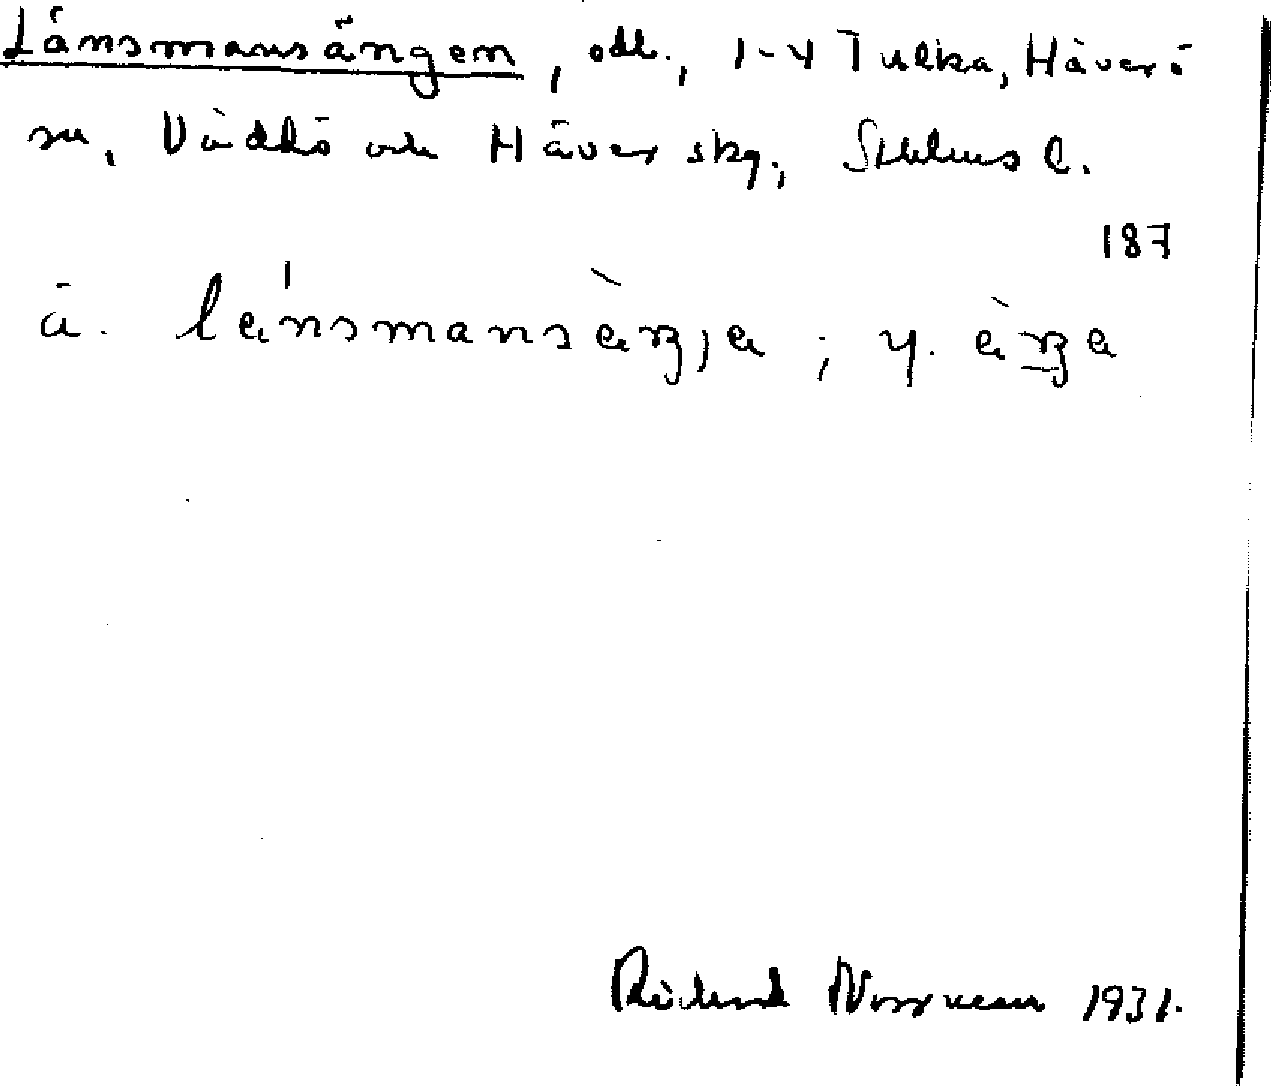 Länsmansängen, odl., 1-4 Tulka, Häverö
sn, Väddö och Häverö skg., Sthlms l.
187
ä. länsmansäŋja; y. äŋa
Rickard Norrman 1931.